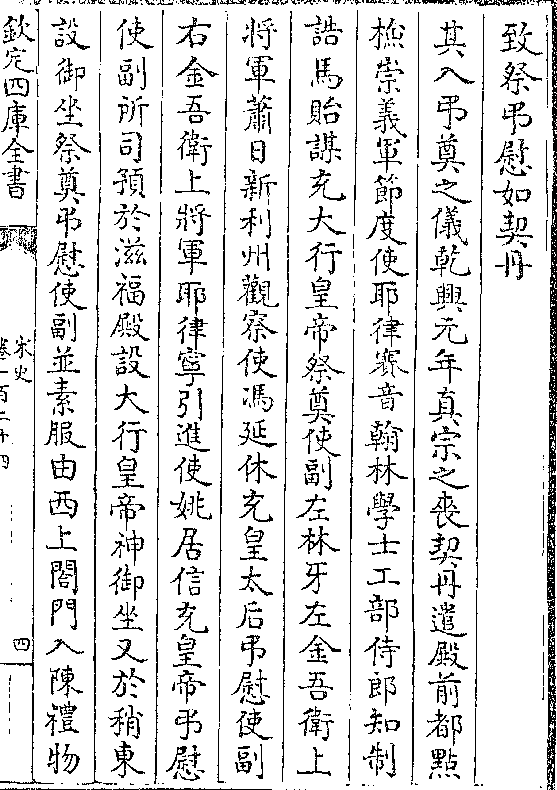 致祭弔慰如契丹
其入弔奠之儀乾興元年真宗之喪契丹遣殿前都㸃
檢崇義軍節度使耶律賽音翰林學士工部侍郎知制
誥馬貽謀充大行皇帝祭奠使副左林牙左金吾衛上
將軍蕭日新利州觀察使馮延休充皇太后弔慰使副
右金吾衛上將軍耶律寧引進使姚居信充皇帝弔慰
使副所司預於滋福殿設大行皇帝神御坐又於稍東
設御坐祭奠弔慰使副並素服由西上閤門入陳禮物
欽定四庫全書
宋史
卷一百二十四
四